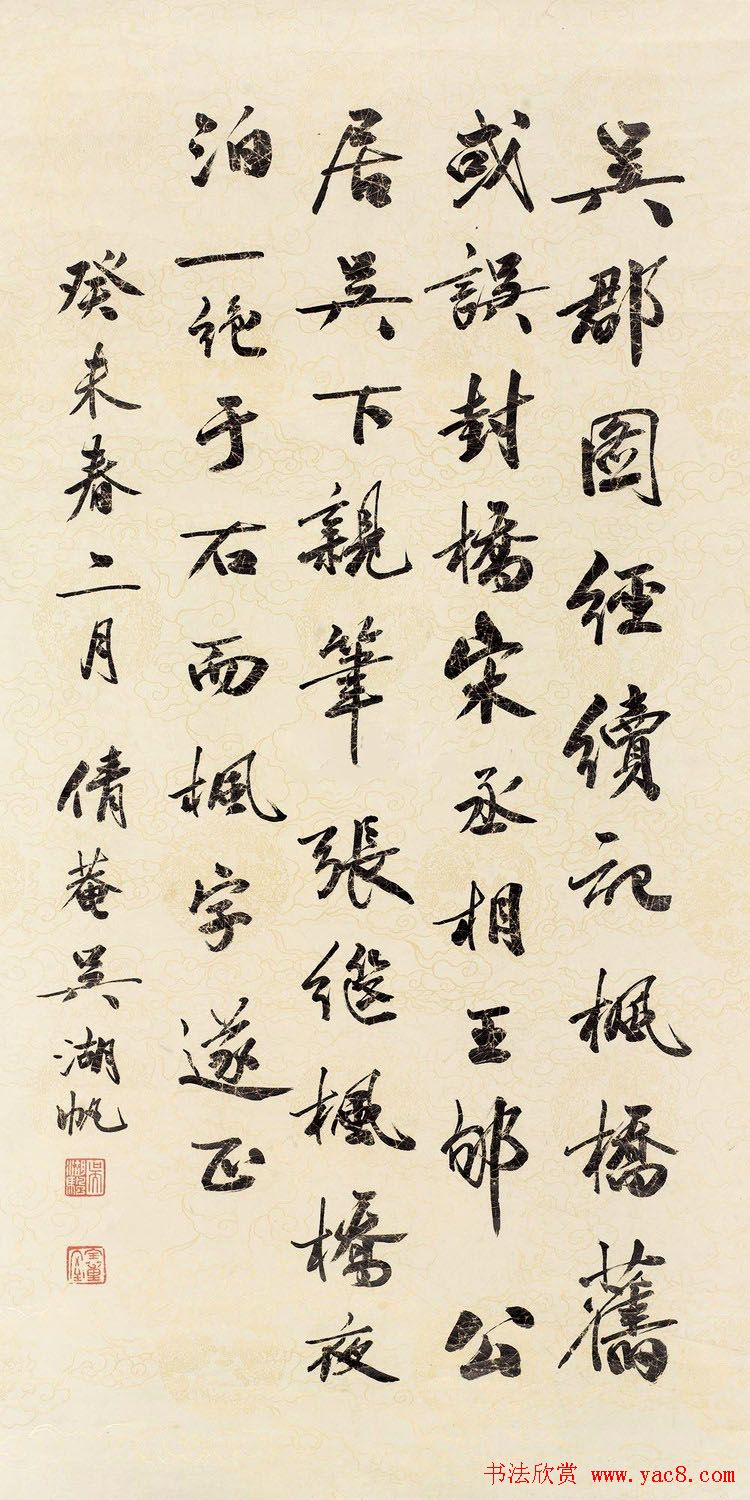 吳郡圖經續記楓橋舊
或誤封橋宋丞相王郇公
居吳下親筆張繼楓橋夜
泊一絶于右而楓字遂正
癸未春二月 倩菴吳湖帆
書法欣赏 www.yac8.com